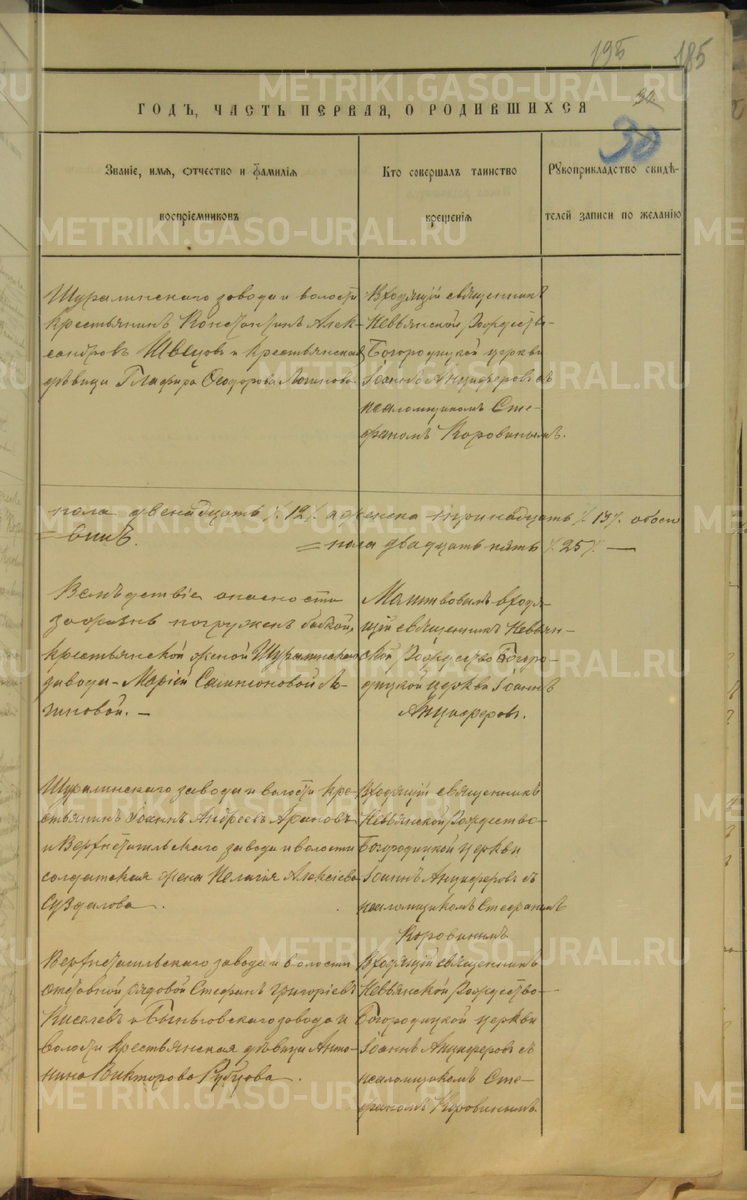 195 185
32
ГОДЪ, ЧАСТЬ ПЕРВАЯ, О РОДИВШИХСЯ
30
Званіе, имя, отчество и фамилія
воспріемниковъ
Кто совершалъ таинство
крещенія
Рукоприкладство свидѣ-
телей записи по желанію
Шуралинскаго завода и волости
крестьянинъ Константинъ Алек-
сандровъ Швецовъ и крестьянская
дѣвица Глафира Ѳеодорова Логинова.
Входящій священникъ
Невьянской Рождество-
Богородицкой церкви
Іоаннъ Анциферовъ съ
псаломщикомъ Сте-
фаномъ Коровинымъ.
пола двенадцать /.12/. а женска тринадцать /.13/. обоего
пола двадцать пять /.25/. —
Вслѣдствіе опасности
погруженъ бабкой,
крестьянской женой Шуралинскаго
завода – Маріей Сампсоновой Ло-
гиновой. –
Молитвовалъ входя-
щій священникъ Невьян-
ской Рождество Богоро-
дицкой церкви Іоаннъ
Анциферовъ.
Шуралинскаго завода и волости кре-
стьянинъ Іоаннъ Андреевъ Араповъ
и Верхнетагильскаго завода и волости
солдатская жена Пелагія Алексѣева
Суздалова.
Входящій священникъ
Невьянской Рождество-
Богородицкой церкви
Іоаннъ Анциферовъ съ
псаломщикомъ Стефаномъ
Коровинымъ
Верхнетагильскаго завода и волости
отставной рядовой Стефанъ Григоріевъ
Киселевъ и Быньговскаго завода и
волости крестьянская дѣвица Анто-
нина Викторова Рубцова.
Входящій священникъ
Невьянской Рождество-
Богородицкой церкви
Іоаннъ Анциферовъ съ
псаломщикомъ Сте-
фаномъ Коровинымъ.
METRIKI.GASO-URAL.RU